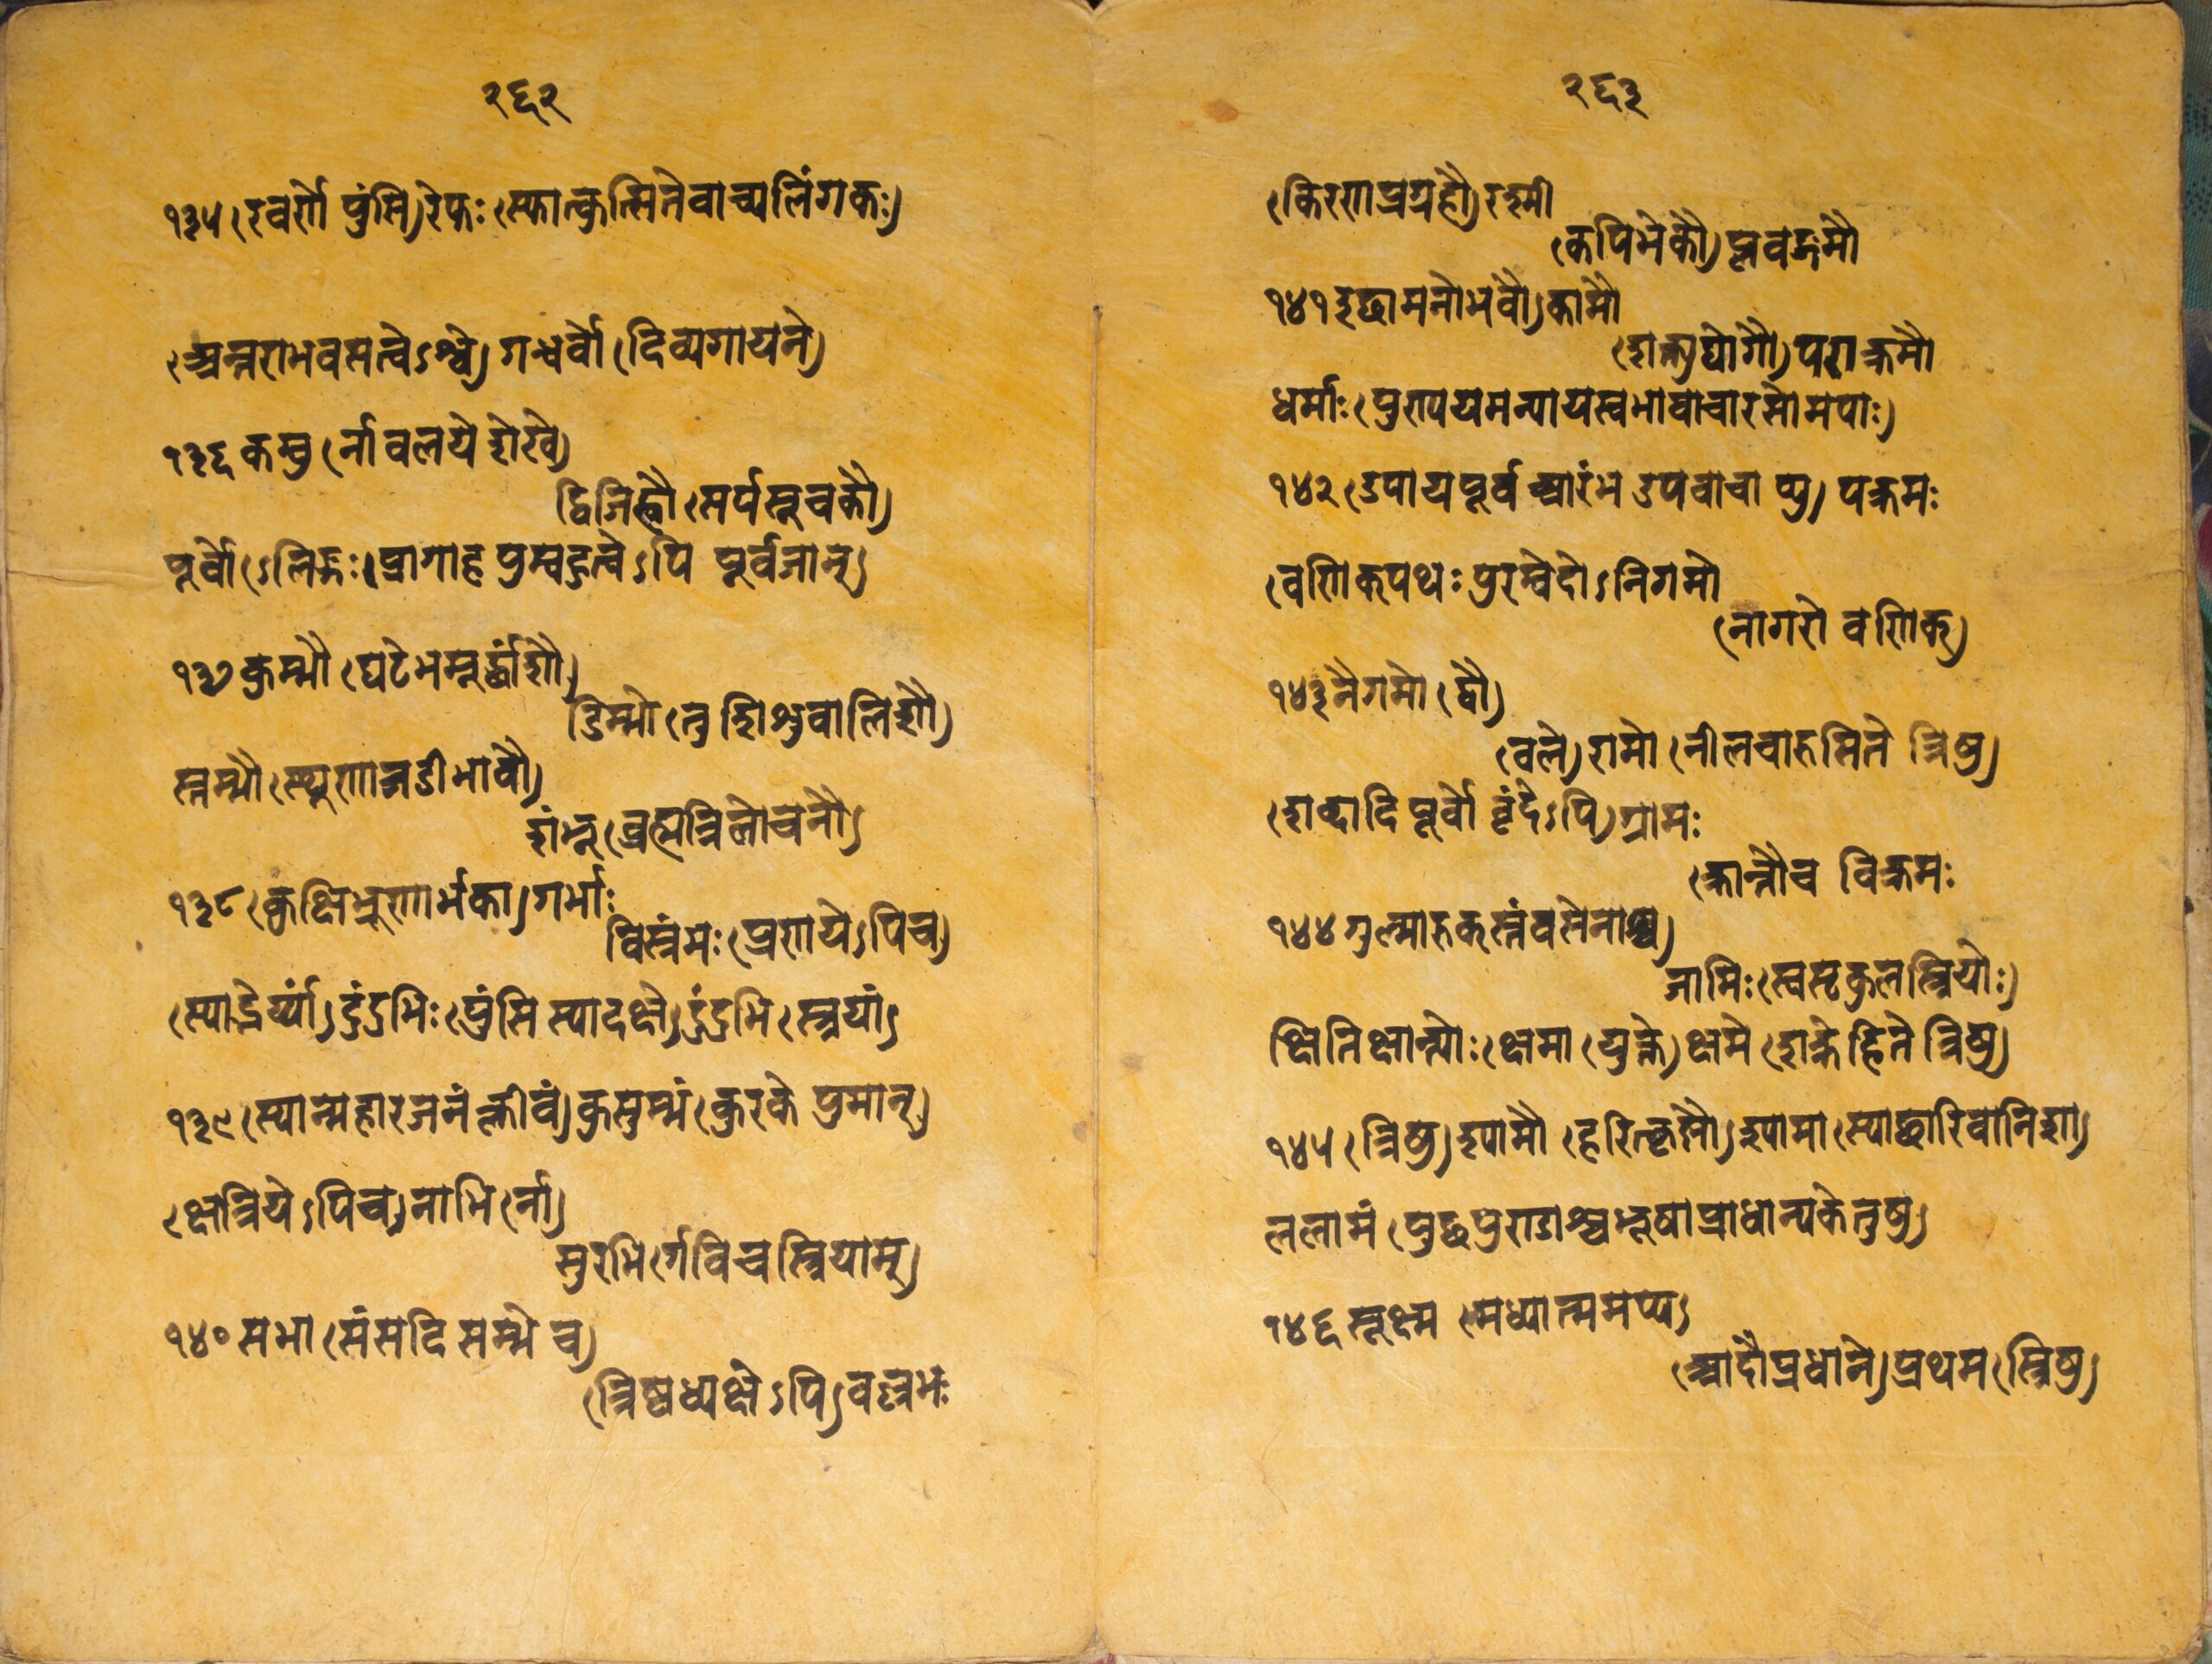 २६२
१३५ (रवर्णे पुंसि) रेफः (स्यात्कुत्सिते वाच्यलिंगकः)
(अन्तराभवसत्वेऽश्वे) गन्धर्वो (दिव्यगायने)
१३६ कम्बु (र्ना वलये शंखे)
द्विजिह्वौ (सर्पसूचकौ)
पूर्वो (ऽलिङ्गः (प्रागाह पुम्बहुत्वेऽपि पूर्वजान्)
१३७ कुम्भौ (घटेभमूर्द्धांशौ)
डिम्भो (तु शिशुवालिशौ)
स्तम्भौ (स्थूणाजडीभावौ)
शंभू (ब्रह्मत्रिलोचनौ)
१३८ (कुक्षिभ्रूणार्भका) गर्भाः
विस्रंभः (प्रणयेऽपिच)
(स्याद्भेर्य्यां) दुंदुभिः (पुंसि स्यादक्षे) दुंदुभि (स्त्रयां)
१३९ (स्यान्महारजनं क्लीवं) कुसुम्भं (कुरके पुमान्)
(क्षत्रियेऽपिच) नाभि (र्ना)
सुरभि (र्गविच स्त्रियाम्)
१४० सभा (संसदि सम्भे च)
(त्रिष्वध्यक्षेऽपि) वल्लभः
२६३
(किरणप्रग्रहौ) रश्मी
(कपिभेकौ) प्लवङ्गमौ
१४१ इछामनोभवौ) कामौ
(शक्त्युद्योगौ) पराक्रमौ
धर्माः (पुण्ययमन्यायस्वभावाचारसोमपाः)
१४२ (उपायपूर्व आरंभ उपवाचा प्यु) पक्रमः
(वणिक्पथः पुरम्वेदो) निगमो
(नागरो वणिक्)
१४३ नैगमो (द्वौ)
(वले) रामो (नीलचारुसिते त्रिषु)
(शव्दादि पूर्वो वृंदेऽपि) ग्रामः
(क्रान्तौच विक्रमः
१४४ गुल्मारुक्स्तंवसेनाश्च)
जामिः (स्वसृकुलस्त्रियोः)
क्षितिक्षान्त्योः (क्षमा (युक्ते) क्षमे (शक्ते हिते त्रिषु)
१४५ (त्रिषु) श्यामौ (हरित्कृष्णौ) श्यामा (स्याच्छारिवानिशा)
ललामं (पुछपुराडाश्वभूषाप्राधान्यकेतुषु)
१४६ सूक्ष्म (मध्यात्ममप्य)
(आदौ प्रधाने) प्रथम (स्त्रिषु)